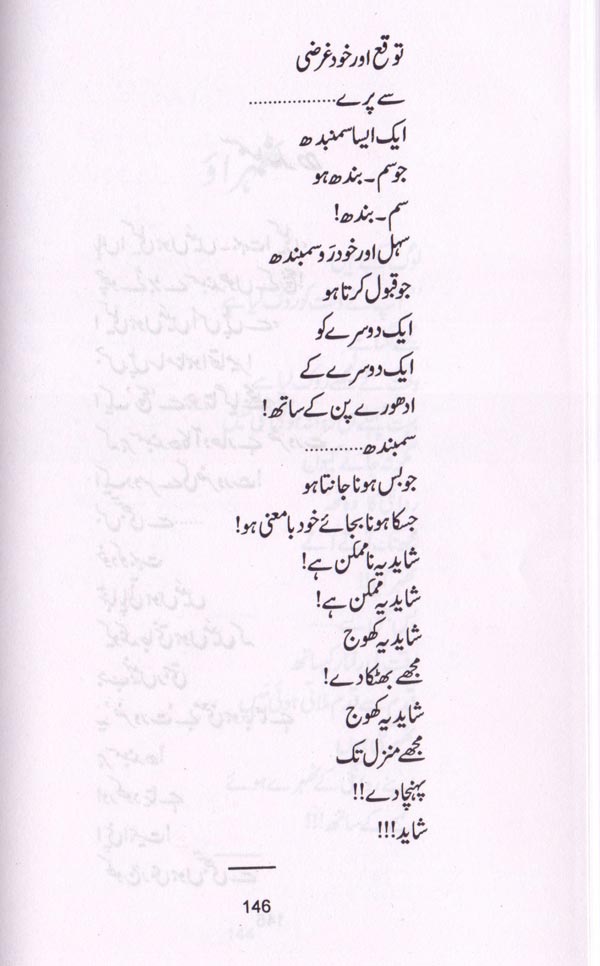 توقع اور خود غرضی
سے پرے..................
ایک ایسا سمنبدھ
جو سم۔بندھ ہو
سم۔بندھ!
سہل اور خود رَو سمبندھ
جو قبول کرتا ہو
ایک دوسرے کو
ایک دوسرے کے
ادھورے پن کے ساتھ!
سمبندھ............
جو بس ہونا جانتا ہو
جسکا ہونا بجائے خود بامعنی ہو!
شاید یہ ناممکن ہے!
شاید یہ ممکن ہے!
شاید یہ کھوج
مجھے بھٹکا دے!
شاید یہ کھوج
مجھے منزل تک
پہنچا دے!!
شاید!!!
146